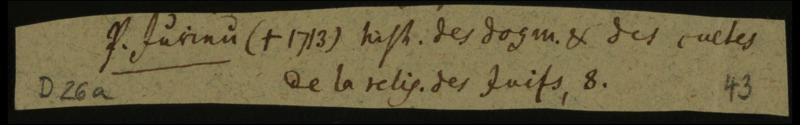 P. Jurieu († 1713) hist. des dogm. & des cultes
de la relig. des Juifs, 8.
D 26a
43